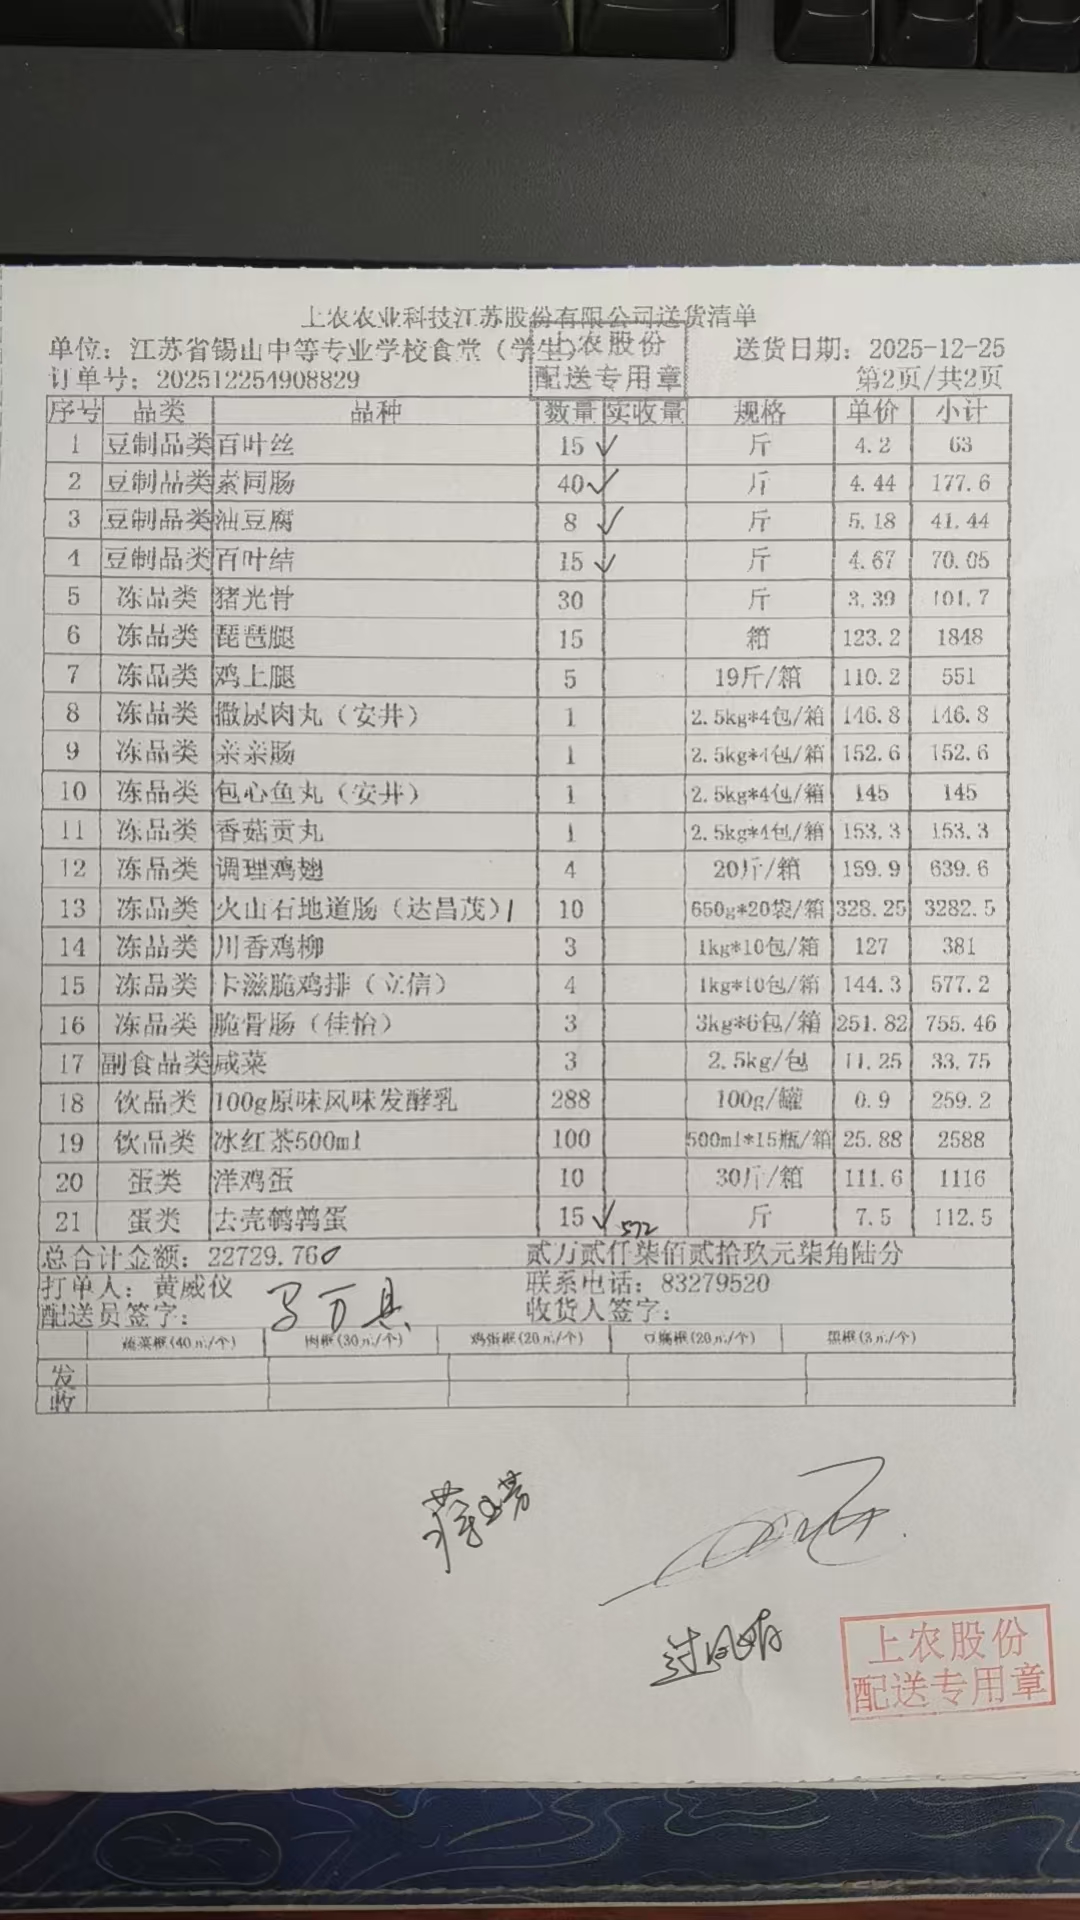 上农农业科技江苏股份有限公司送货清单
单位：江苏省锡山中等专业学校食堂（学生） 送货日期：2025-12-25
上农股份
配送专用章
订单号：202512254908829 第2页/共2页
序号 品类 品种 数量 实收量 规格 单价 小计
1 豆制品类 百叶丝 15 ✓ 斤 4.2 63
2 豆制品类 素同肠 40 ✓ 斤 4.44 177.6
3 豆制品类 油豆腐 8 ✓ 斤 5.18 41.44
4 豆制品类 百叶结 15 ✓ 斤 4.67 70.05
5 冻品类 猪光骨 30 斤 3.39 101.7
6 冻品类 琵琶腿 15 箱 123.2 1848
7 冻品类 鸡上腿 5 19斤/箱 110.2 551
8 冻品类 撒尿肉丸（安井） 1 2.5kg*4包/箱 146.8 146.8
9 冻品类 亲亲肠 1 2.5kg*4包/箱 152.6 152.6
10 冻品类 包心鱼丸（安井） 1 2.5kg*4包/箱 145 145
11 冻品类 香菇贡丸 1 2.5kg*4包/箱 153.3 153.3
12 冻品类 调理鸡翅 4 20斤/箱 159.9 639.6
13 冻品类 火山石地道肠（达昌茂） 10 650g*20袋/箱 328.25 3282.5
14 冻品类 川香鸡柳 3 1kg*10包/箱 127 381
15 冻品类 卡滋脆鸡排（立信） 4 1kg*10包/箱 144.3 577.2
16 冻品类 脆骨肠（佳怡） 3 3kg*6包/箱 251.82 755.46
17 副食品类 咸菜 3 2.5kg/包 11.25 33.75
18 饮品类 100g原味风味发酵乳 288 100g/罐 0.9 259.2
19 饮品类 冰红茶500ml 100 500ml*15瓶/箱 25.88 2588
20 蛋类 洋鸡蛋 10 30斤/箱 111.6 1116
21 蛋类 去壳鹌鹑蛋 15 ✓ 斤 7.5 112.5
总合计金额：22729.76 贰万贰仟柒佰贰拾玖元柒角陆分
打单人：黄威仪 联系电话：83279520
配送员签字： 收货人签字：
蔬菜框(40元/个) 肉框(30元/个) 鸡蛋框(20元/个) 豆腐框(20元/个) 黑框(3元/个)
发
收
上农股份
配送专用章